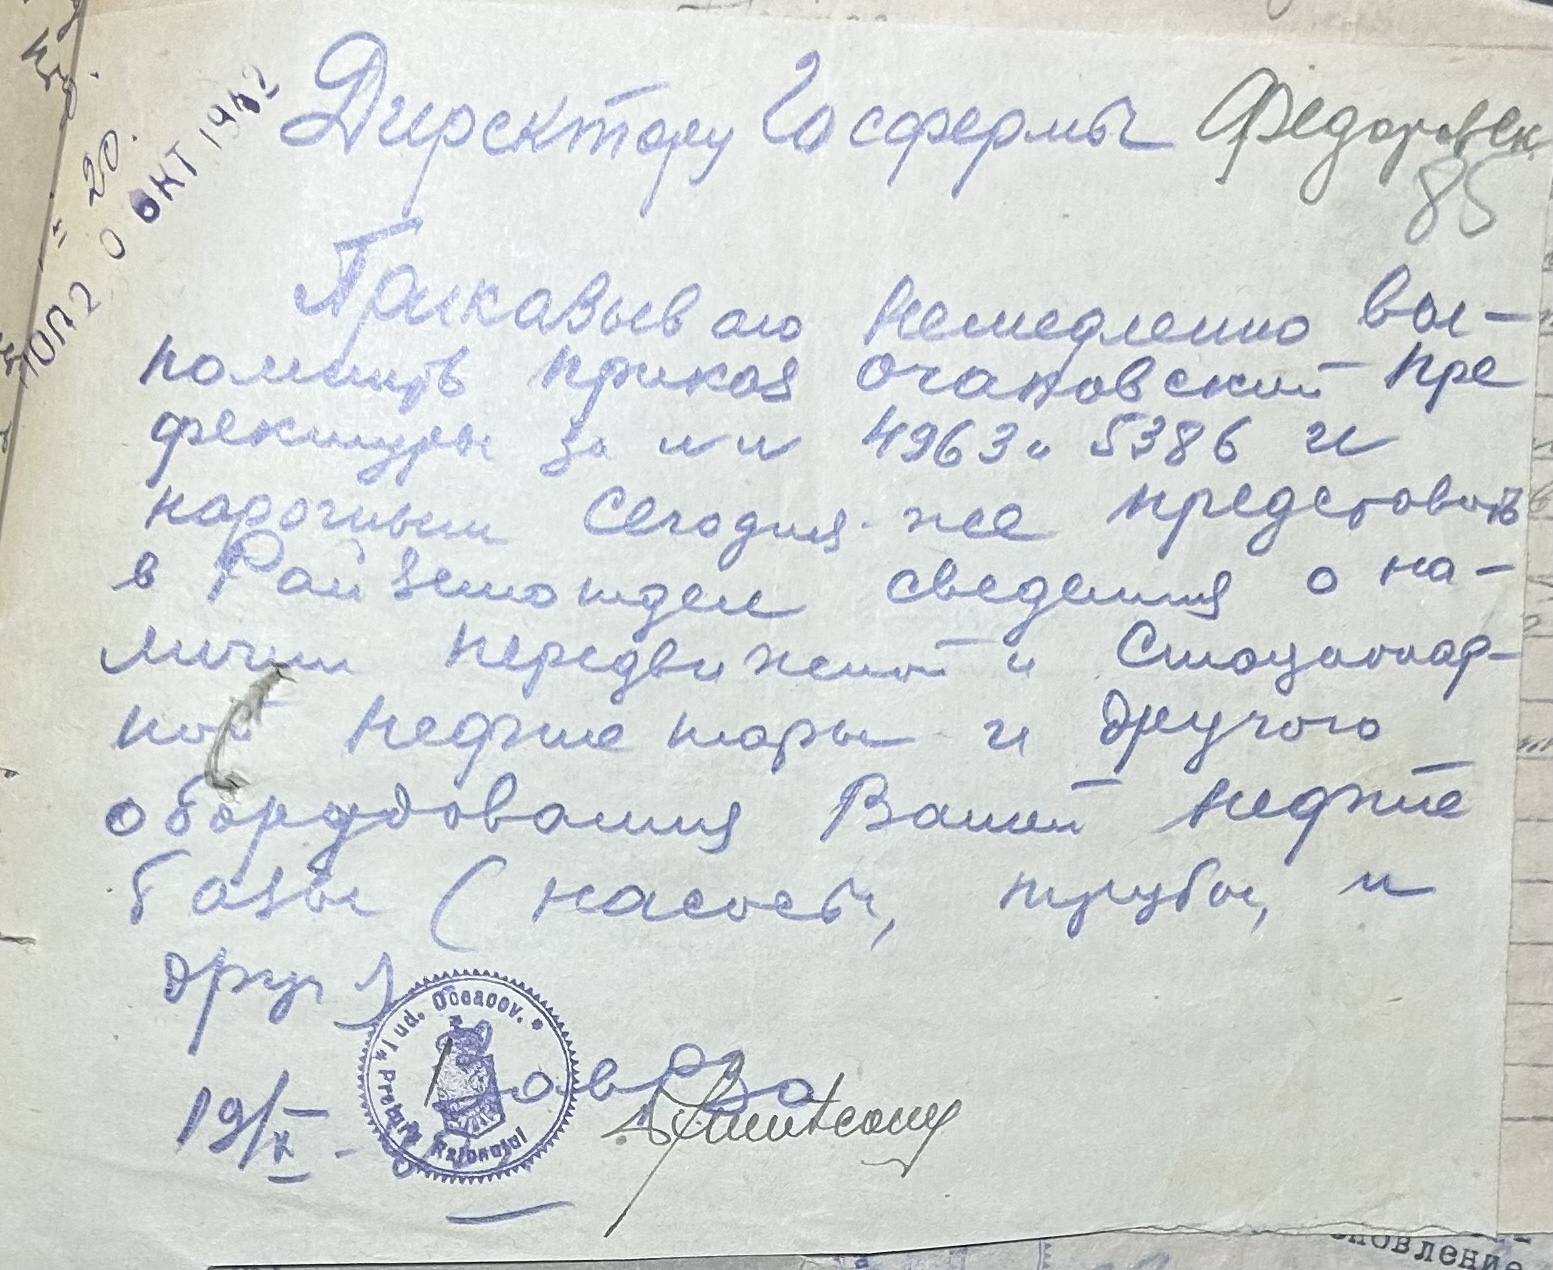 Директору Госфермы Федоровск
85
20.
20 ОКТ 1942
Приказываю немедленно вы-
полнить приказ очаковский пре
фектуры за нн 4963 и 5386 и
нарочным сегодня-же представить
в Райземотдел сведения о на-
личии передвижной и стационар-
ной нефте тары и другого
оборудования Вашей нефте
базы (насосы, трубы, и
друг)
* Jud. Oceacov. * Pretura Raionului
19/X
новление